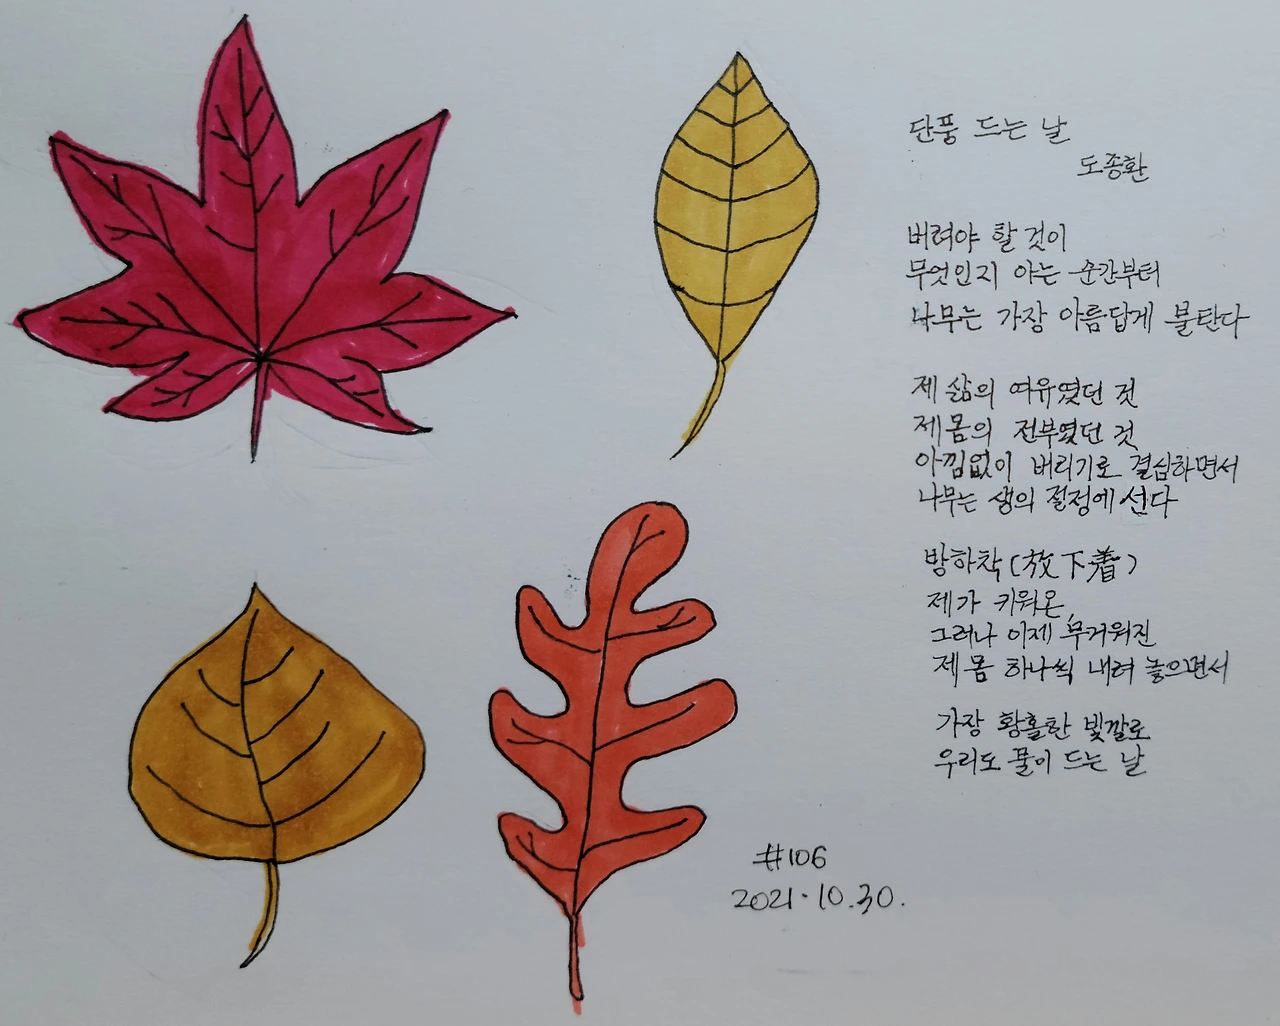 단풍 드는 날
도종환
버려야 할 것이
무엇인지 아는 순간부터
나무는 가장 아름답게 불탄다
제 삶의 여유였던 것
제 몸의 전부였던 것
아낌없이 버리기로 결심하면서
나무는 생의 절정에 선다
방하착(放下着)
제가 키워온,
그러나 이제 무거워진
제 몸 하나씩 내려 놓으면서
가장 황홀한 빛깔로
우리도 물이 드는 날
#106
2021.10.30.